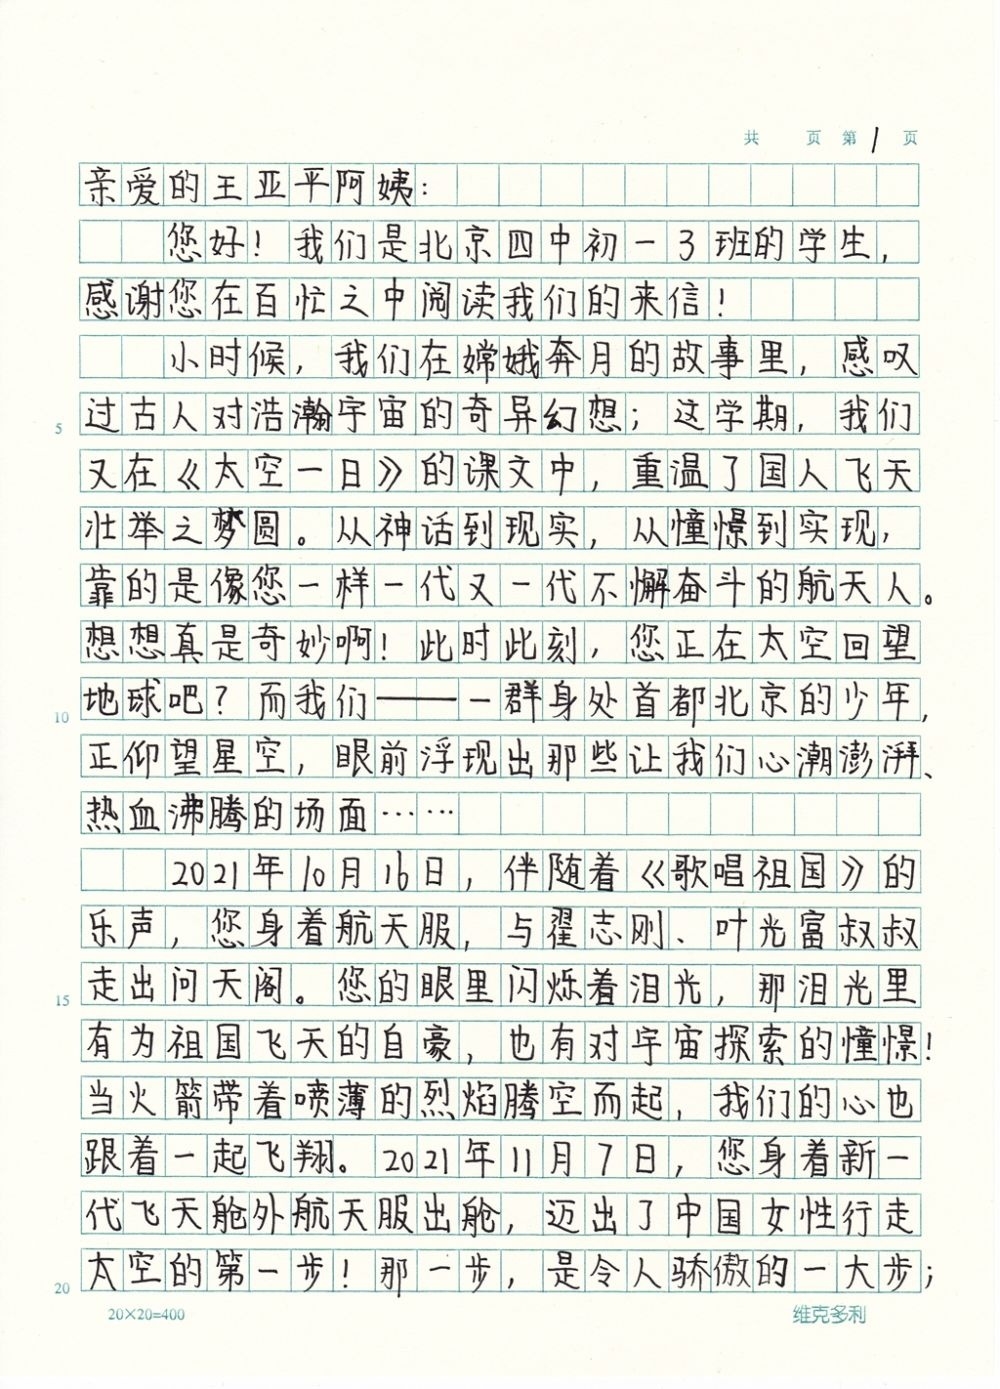 共 页 第 1 页
亲爱的王亚平阿姨：
您好！我们是北京四中初一3班的学生，
感谢您在百忙之中阅读我们的来信！
小时候，我们在嫦娥奔月的故事里，感叹
5 过古人对浩瀚宇宙的奇异幻想；这学期，我们
又在《太空一日》的课文中，重温了国人飞天
壮举之梦圆。从神话到现实，从憧憬到实现，
靠的是像您一样一代又一代不懈奋斗的航天人。
想想真是奇妙啊！此时此刻，您正在太空回望
10 地球吧？而我们——一群身处首都北京的少年，
正仰望星空，眼前浮现出那些让我们心潮澎湃、
热血沸腾的场面……
2021年10月16日，伴随着《歌唱祖国》的
乐声，您身着航天服，与翟志刚、叶光富叔叔
15 走出问天阁。您的眼里闪烁着泪光，那泪光里
有为祖国飞天的自豪，也有对宇宙探索的憧憬！
当火箭带着喷薄的烈焰腾空而起，我们的心也
跟着一起飞翔。2021年11月7日，您身着新一
代飞天舱外航天服出舱，迈出了中国女性行走
20 太空的第一步！那一步，是令人骄傲的一大步；
20×20=400 维克多利